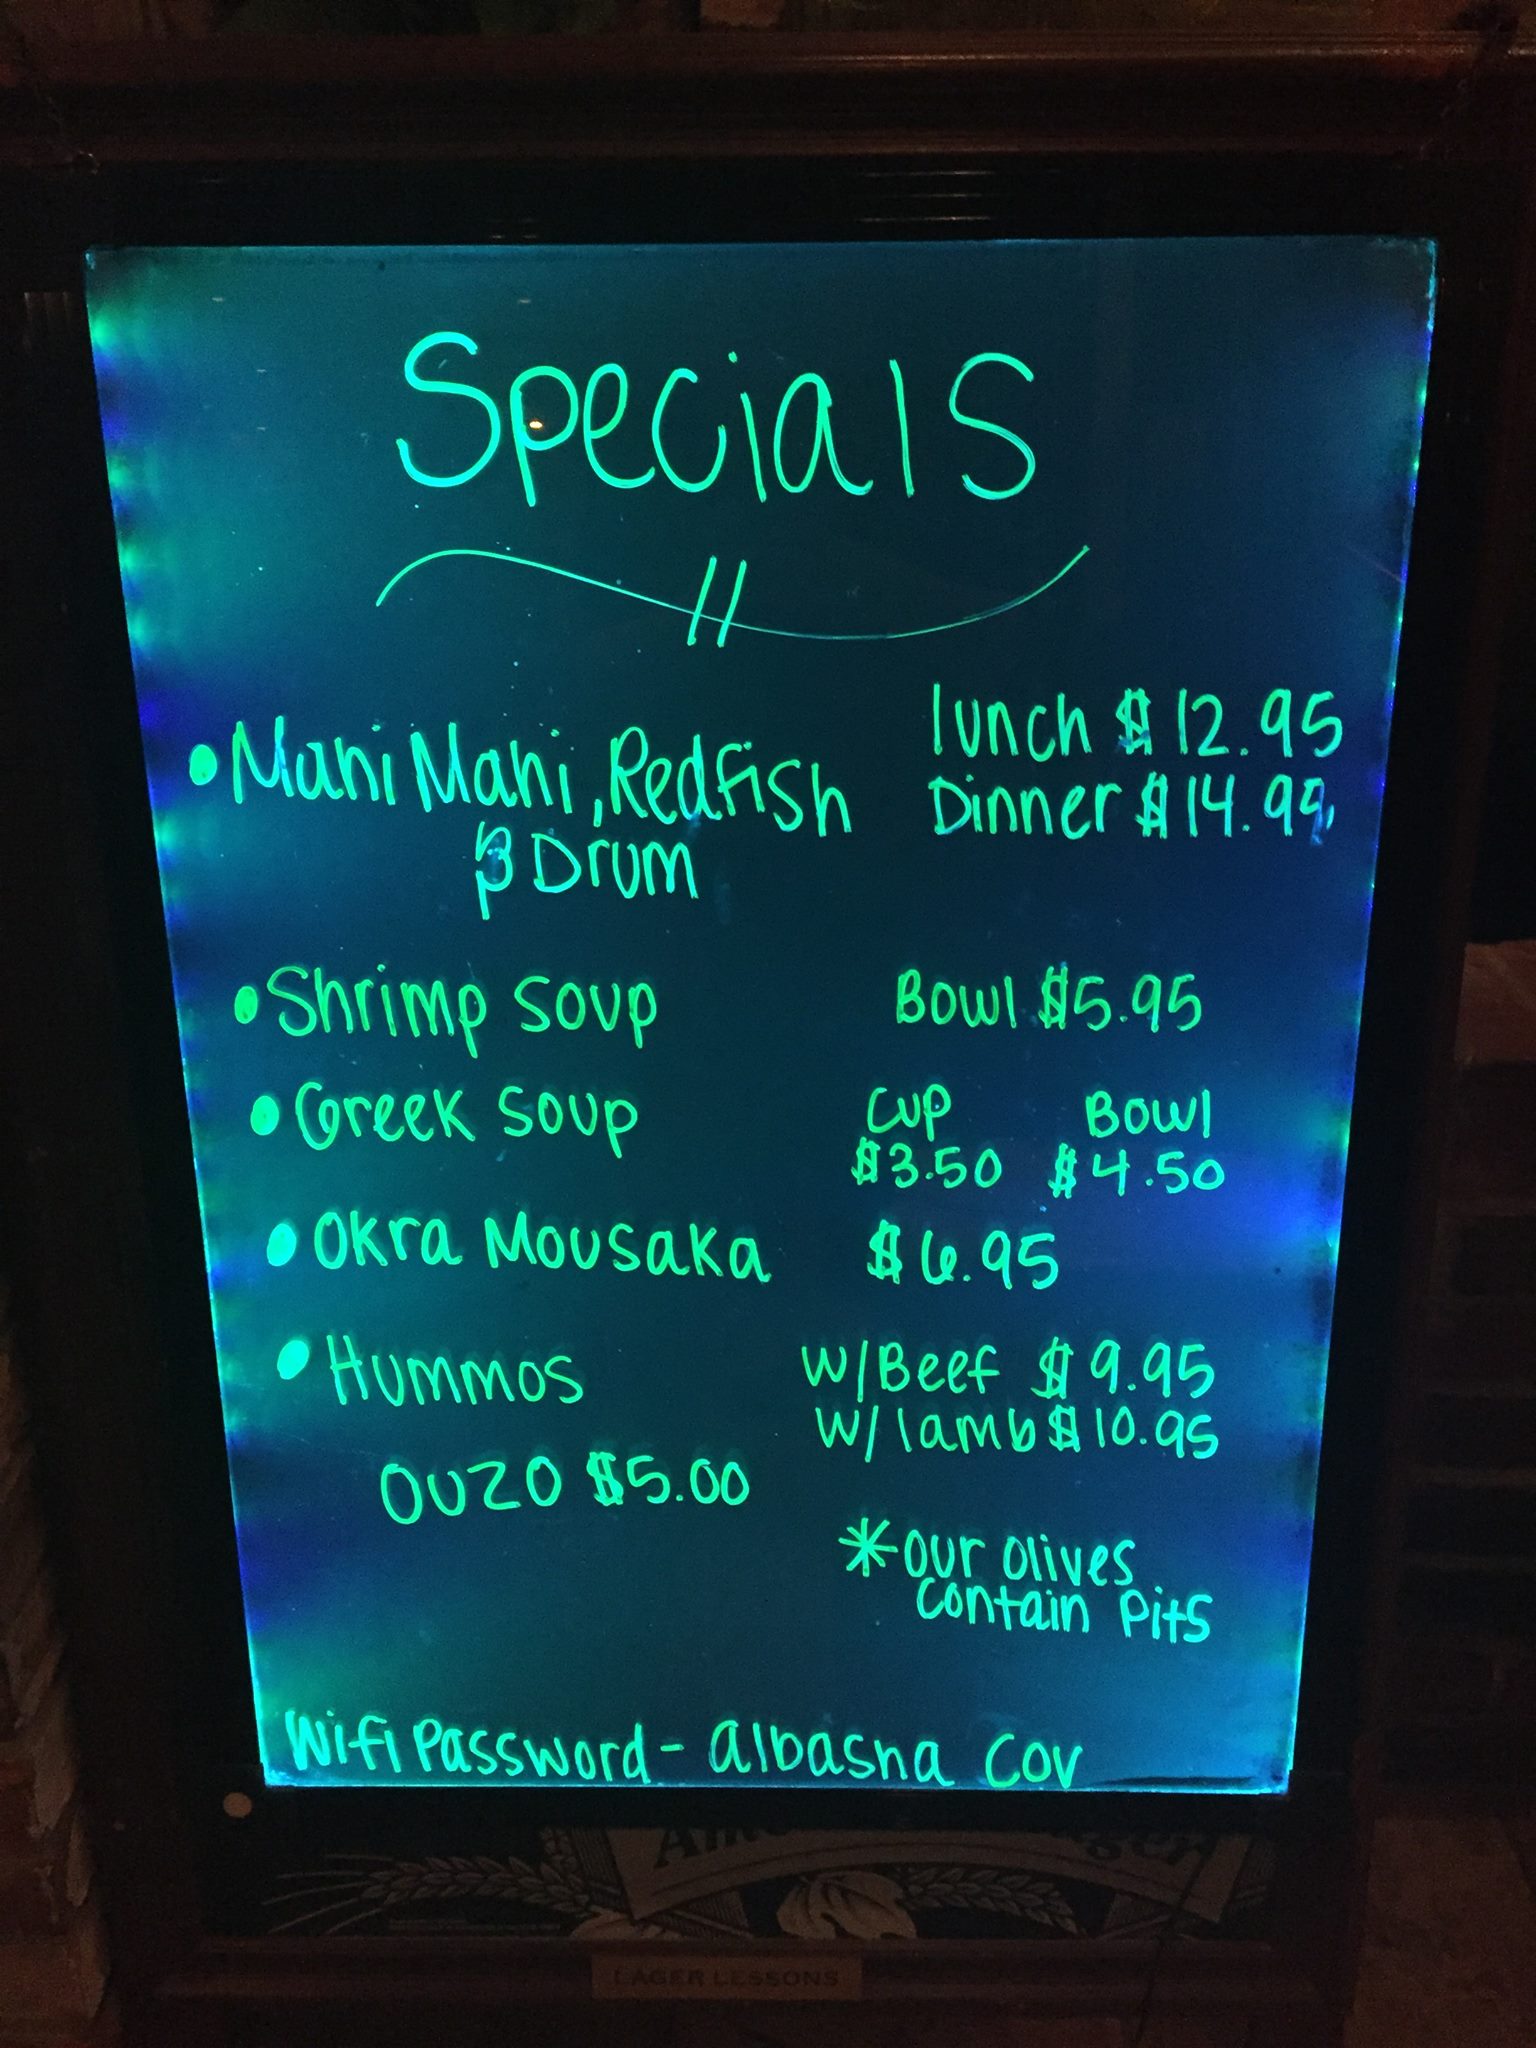 Specials
• Mahi Mahi, Redfish lunch $12.95
& Drum Dinner $14.99
• Shrimp soup Bowl $5.95
• Greek soup Cup Bowl
$3.50 $4.50
• Okra Mousaka $6.95
• Hummos w/Beef $9.95
w/lamb $10.95
OUZO $5.00
* our olives
contain pits
Wifi Password - albasha cov
LAGER LESSONS